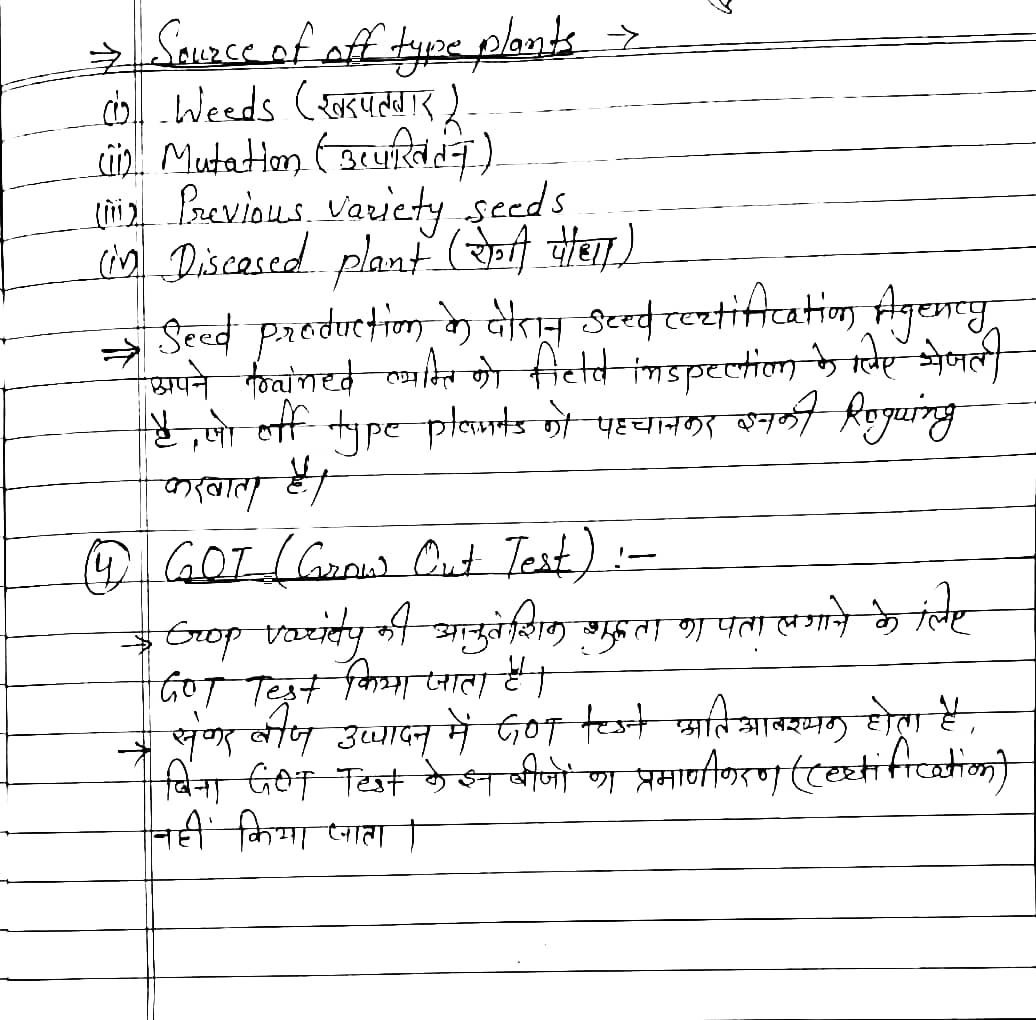 → Source of off type plants →
(i) Weeds (खरपतवार)
(ii) Mutation (उत्परिवर्तन)
(iii) Previous variety seeds
(iv) Diseased plant (रोगी पौधा)
⇒ Seed production के दौरान Seed certification Agency
अपने trained व्यक्ति को field inspection के लिए भेजती
है, जो off type plants को पहचानकर इनकी Roguing
करवाता है।
④ GOT (Grow Out Test) :-
→ Crop variety की आनुवंशिक शुद्धता का पता लगाने के लिए
GOT Test किया जाता है।
→ संकर बीज उत्पादन में GOT test अति आवश्यक होता है,
बिना GOT Test के इन बीजों का प्रमाणीकरण (Certification)
नहीं किया जाता।